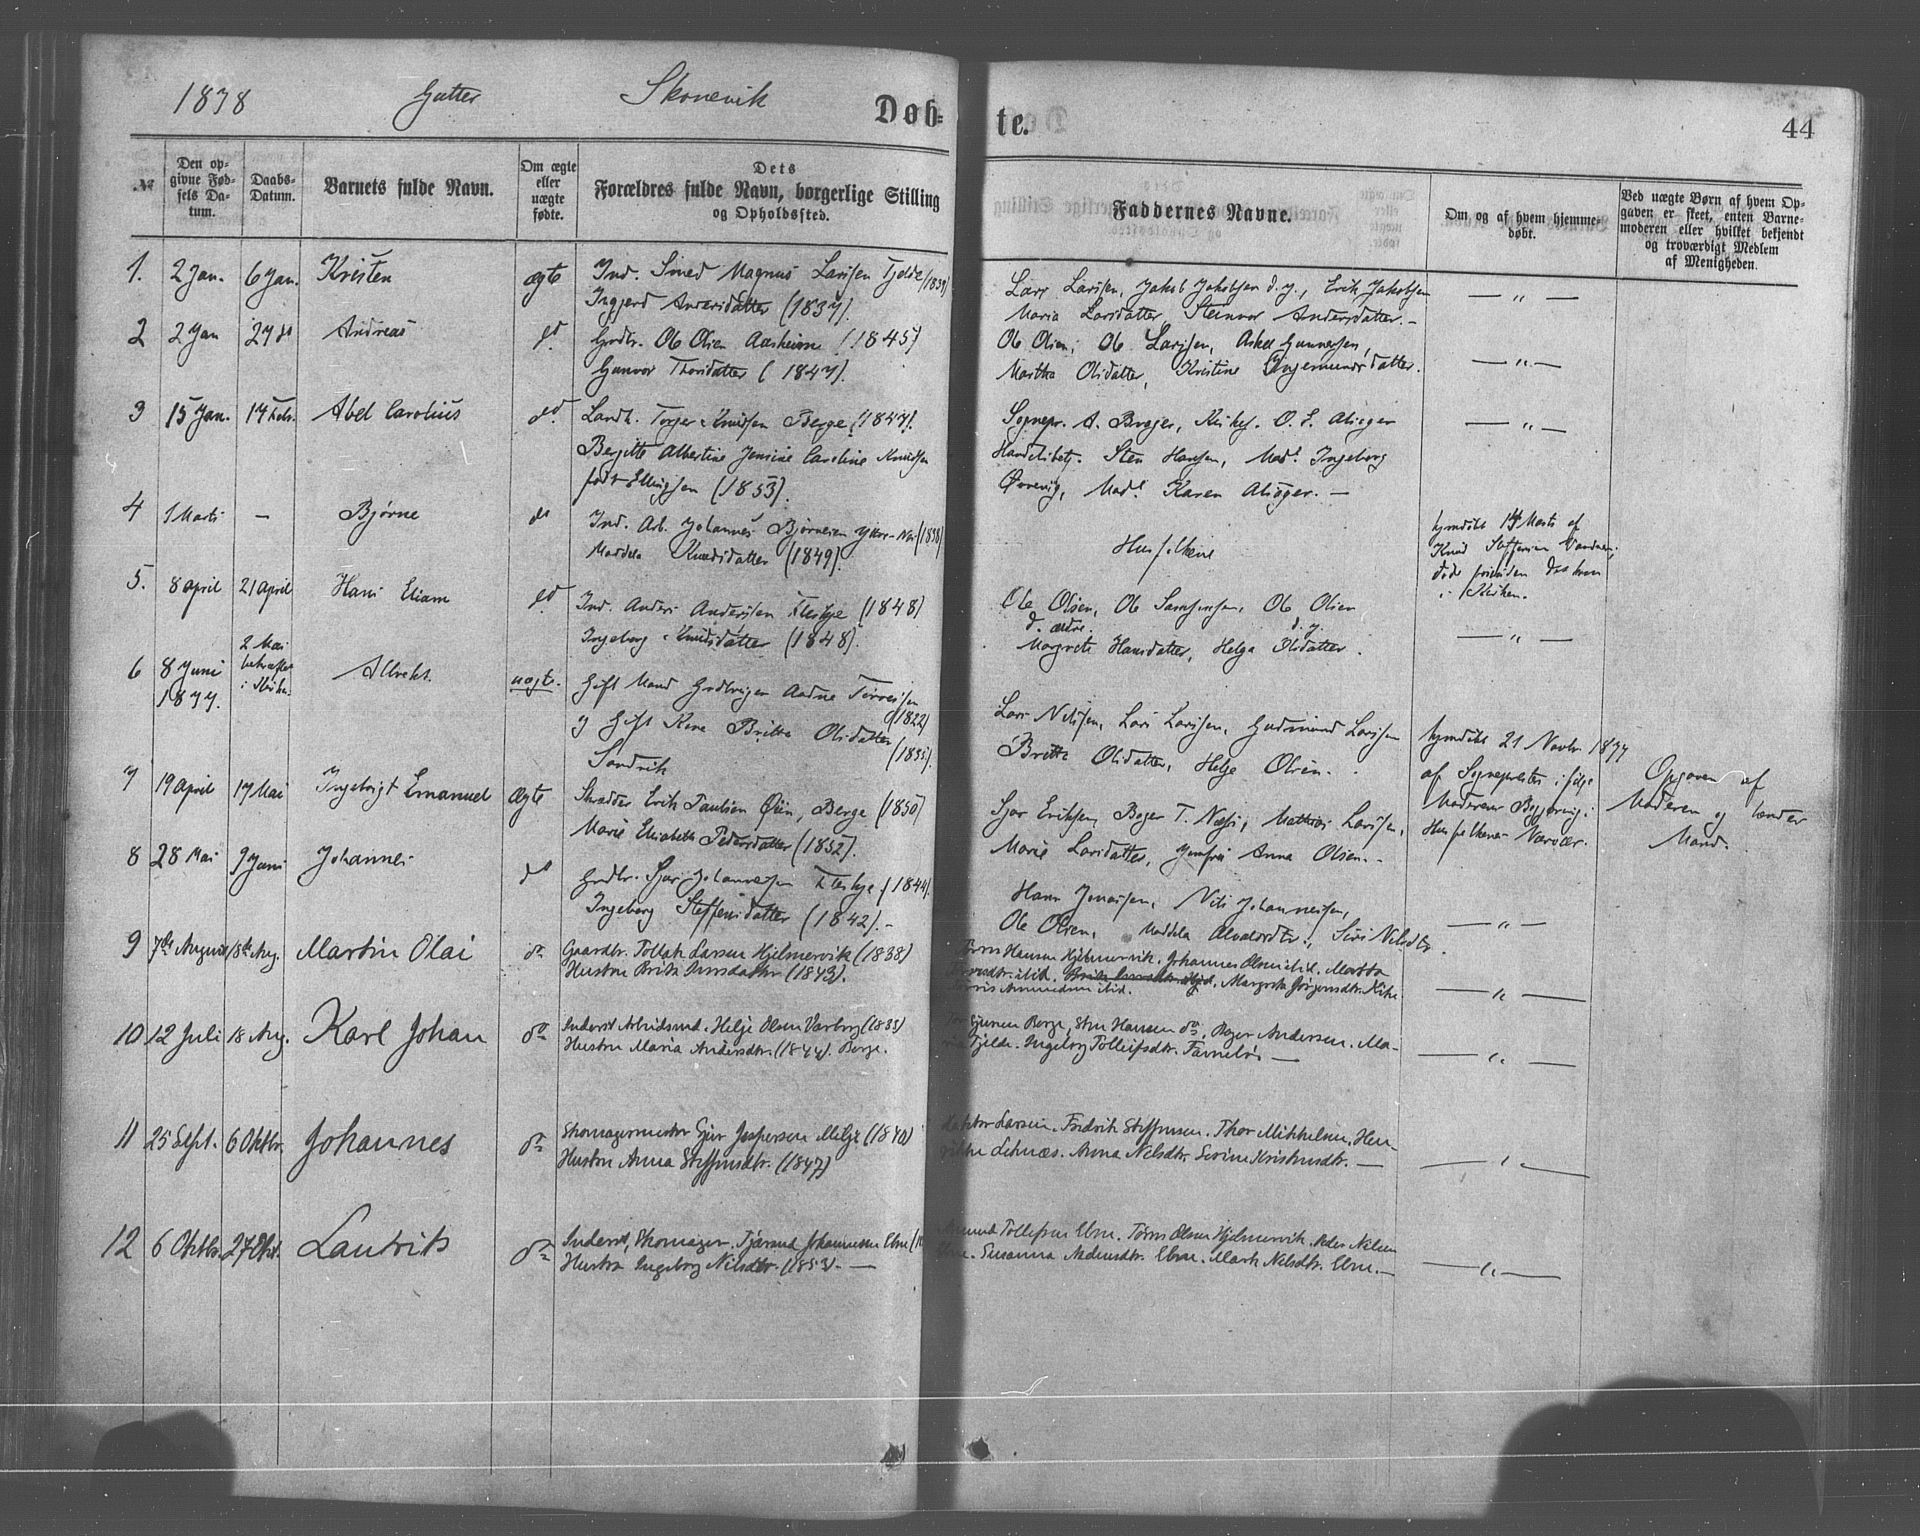 1878 Gutter Skonevik
Døb-
te.
44
№
Den op-
givne Fød-
sels Da-
tum.
Daabs-
Datum.
Barnets fulde Navn.
Om ægte
eller
uægte
fødte.
Dets
Forældres fulde Navn, borgerlige Stilling
og Opholdssted.
Faddernes Navne.
Om og af hvem hjemme-
døbt.
Ved uægte Børn af hvem Op-
gaven er skeet, enten Barne-
moderen eller hvilket bekjendt
og troværdigt Medlem
af Menigheden.
1. 2 Jan. 6 Jan. Kristen ægte Ind. Magnus Larssen Tjelde
Ingjerd Andersdatter (1837).
Lars Larssen, Jakob Jakobsen d. y., Erik Jakobsen
Maria Larsdatter, Steinvor Andersdatter. —
— „ —
2 2 Jan 27 do Andreas do. Grdbr. Ole Olsen Aasheim (1845)
Gunvor Thorsdatter (1847).
Ole Olsen, Ole Larssen, Askel Gunnarsen,
Martha Olsdatter, Kristine Ingemundsdatter.
— „ —
3 15 Jan. 17 Febr. Abel Carolius do. Landh. Torger Knudsen Berge (1847).
Bergitte Albertine Jensine Caroline Knudsen
født Ellingsen (1853).
Sognepr. A. Brager, O. L. Alsger
Handelsbetj. Sten Hansen, Mad. Ingeborg
Øvrevig, Mad. Karen Alsger. —
— „ —
4 1 Marts — Bjørne do Ind. Arb. Johannes Bjørnesen (1838)
Maddela Knudsdatter (1849).
Husfolkene
hjmdøbt 14 Marts af
Knud Steffensen
død forinden det kom
i Kirken.
5. 8 April 21 April Hans Eliam do Ind. Anders Andersen Fleskje (1848)
Ingeborg Knudsdatter (1848).
Ole Olsen, Ole Samsonsen, Ole Olsen
d. ældre. d. y.
Margrete Hansdatter, Helga Olsdatter.
— „ —
6 8 Juni
1877.
2 Mai
i Kirken.
Albrekt. uægte. Gift Mand Aadne
(1822)
og Gift Kone Britta Olsdatter
Sandvik
Lars Nilssen, Lars Larssen, Gudmund Larssen
Britta Olsdatter, Helge Olsen.
hjmdøbt 21 Novbr. 1877
af Sognepresten ifølge
Moderens Begjæring i
Husfolkenes Nærvær.
Opgaven af
Moderen og hendes
Mand.
7 19 April 17 Mai Ingebrigt Emanuel Ægte Skrædder Erik Paulsen Øien, Berge (1850)
Marie Elisabeth Pedersdatter (1852).
Sjur Eriksen, Boger T. Næss, Mathias Larssen,
Marie Larsdatter, Jomfru Anna Olsen. -
8 28 Mai 9 Juni Johannes do Grdbr. Sjur Johannessen Fleskje (1844).
Ingeborg Steffensdatter (1842). -
Hans Jonassen, Nils Johannessen,
Ole Olsen, Maddela Siri Nilsdtr.
— „ —
9 7de August 18de Aug. Martin Olai do Gaardbr. Tollak Larsen Hjelmervik (1838)
Hustru Brita (1843).
Hansen Hjelmervik. Johannes Olsen ibid. Martha
ibid. Margreta Jørgensdtr. Kike
ibid.
— „ —
10 12 Juli 18 Aug. Karl Johan do Inderst Arbeidsmd. Helje Olsen Varberg (1835)
Hustru Maria Andersdtr. (1844). Berge.
Berge, Sten Hansen do, Boger Andersen. Ma-
ria Tjelde. Ingeborg Tolleifsdtr. —
— „ —
11 25 Sept. 6 Oktbr. Johannes do Skomagermester Gjur Jespersen Milje (1840)
Hustru Anna Steffensdtr. (1847)
Larsen. Fredrik Steffensen. Thor Mikkelsen, Hen-
Anna Nelsdtr. Serine Kristensdtr. —
— „ —
12 6 Oktbr. 27 Okt. Lautrits do Inderst, Skomager. Tjærand Johannessen Ebne
Hustru Ingeborg Nilsdtr. (1853). —
Amund Tollefsen Ebne. Tørris Olsen Hjelmervik. Peder Nilsen
Ebne. Susanna Ebne. Nelsdtr. Ebne. —
— „ —